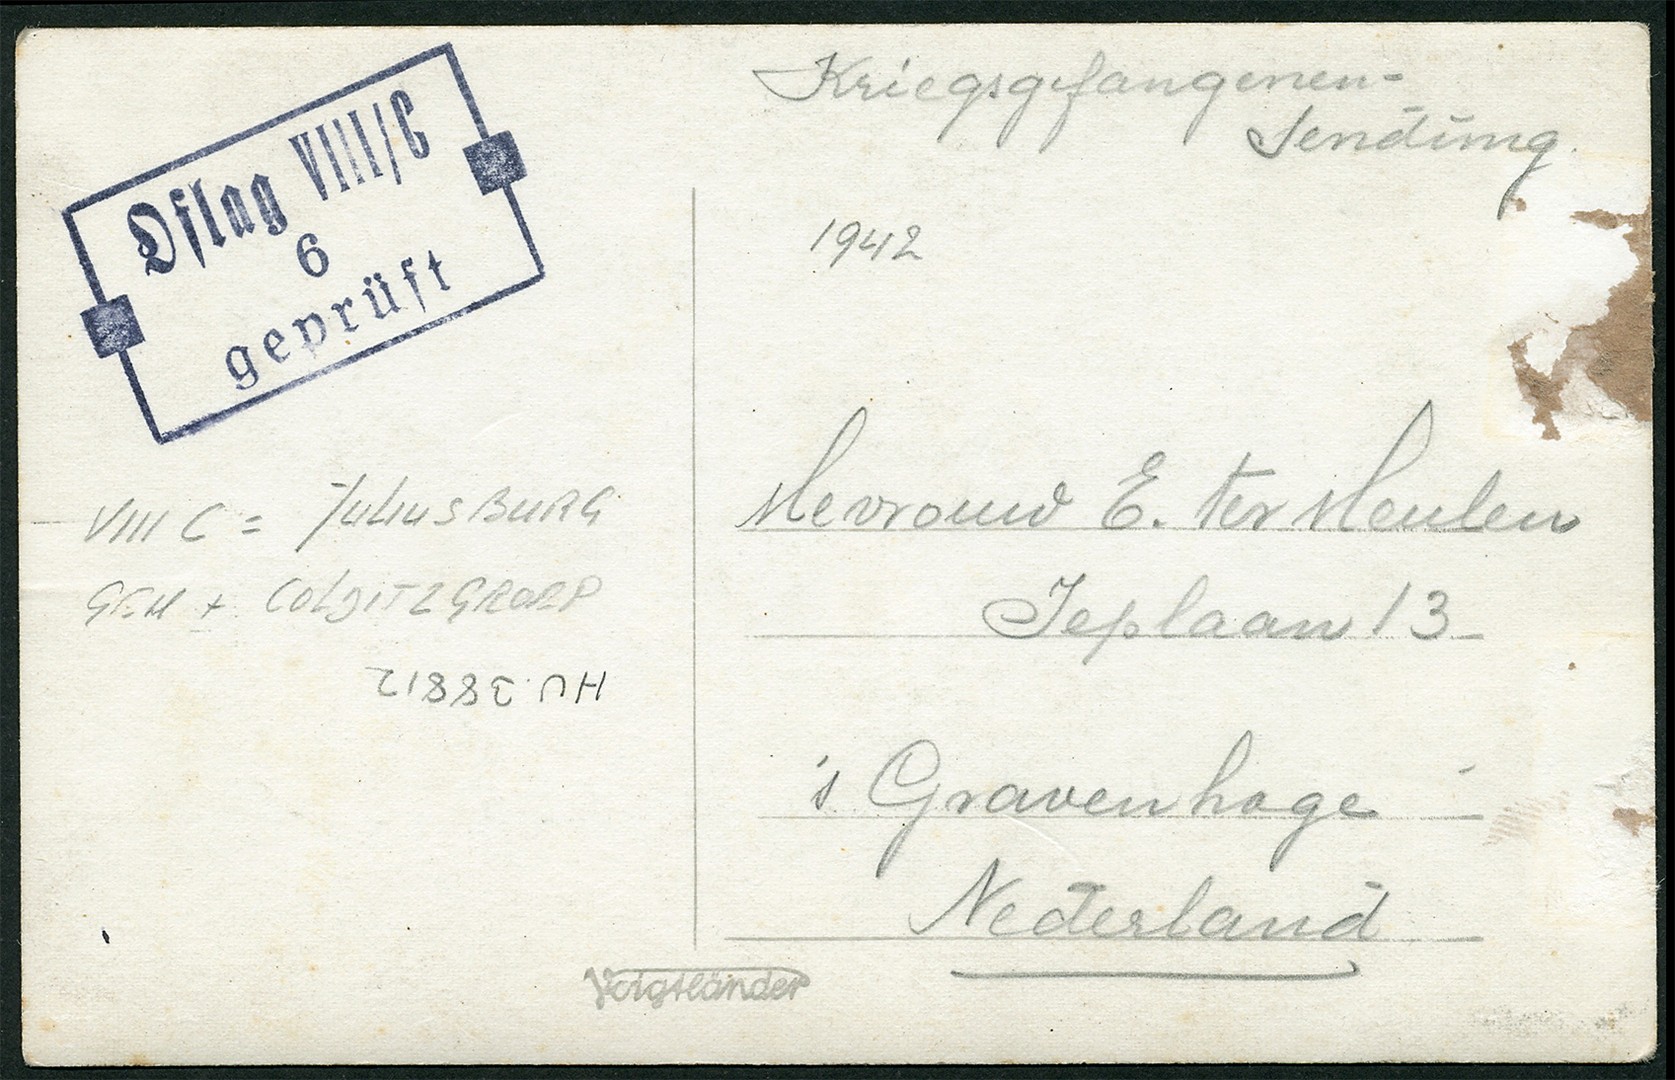 Oflag VIII/C
6
geprüft
Kriegsgefangenen-
Sendung.
1942
Mevrouw E. ter Meulen
Jeplaan 13
's Gravenhage
Nederland
VIII C = JULIUSBURG
GEM + COLDITZGROEP
HU 38812
Voigtländer